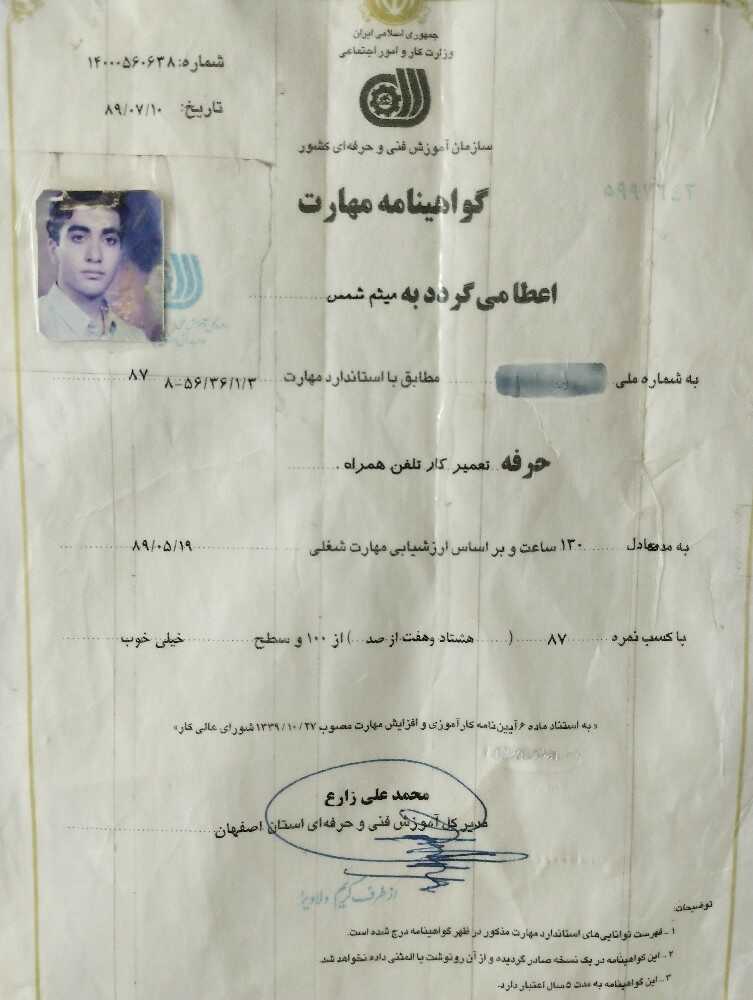 جمهوری اسلامی ایران
وزارت کار و امور اجتماعی
شماره: ۱۴۰۰۰۵۶۰۶۳۸
تاریخ: ۸۹/۰۷/۱۰
سازمان آموزش فنی و حرفه‌ای کشور
گواهینامه مهارت
اعطا می گردد به میثم شمس
به شماره ملی مطابق با استاندارد مهارت ۸-۵۶/۳۶/۱/۳ ۸۷
حرفه تعمیر کار تلفن همراه .
به مدت معادل ۱۳۰ ساعت و بر اساس ارزشیابی مهارت شغلی ۸۹/۰۵/۱۹
با کسب نمره ۸۷ ( هشتاد وهفت از صد ) از ۱۰۰ و سطح خیلی خوب
« به استناد ماده ۶ آیین نامه کارآموزی و افزایش مهارت مصوب ۱۳۳۹/۱۰/۲۷ شورای عالی کار »
محمد علی زارع
مدیر کل آموزش فنی و حرفه‌ای استان اصفهان
از طرف کریم دلاویز
توضیحات:
۱ - فهرست توانایی‌های استاندارد مهارت مذکور در ظهر گواهینامه درج شده است.
۲ - این گواهینامه در یک نسخه صادر گردیده و از آن رونوشت یا المثنی داده نخواهد شد.
۳ - این گواهینامه به مدت ۵ سال اعتبار دارد.